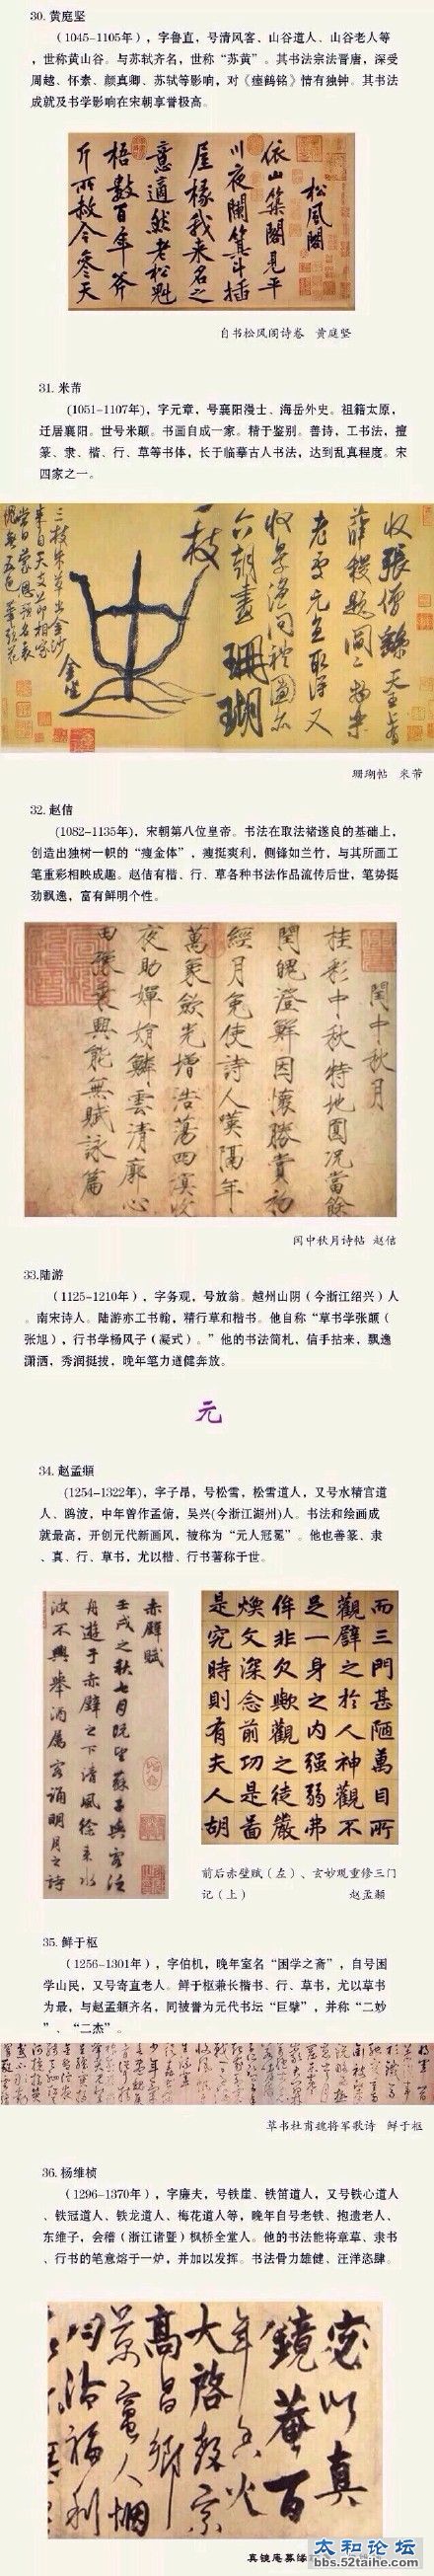 30. 黄庭坚
（1045-1105年），字鲁直，号清风客、山谷道人、山谷老人等
，世称黄山谷。与苏轼齐名，世称“苏黄”。其书法宗法晋唐，深受
周越、怀素、颜真卿、苏轼等影响，对《瘗鹤铭》情有独钟。其书法
成就及书学影响在宋朝享誉极高。
松風閣
依山築閣見平
川夜闌箕斗插
屋椽我来名之
意適然老松魁
梧數百年斧
斤所赦今參天
自书松风阁诗卷 黄庭坚
31. 米芾
(1051-1107年)，字元章，号襄阳漫士、海岳外史。祖籍太原，
迁居襄阳。世号米颠。书画自成一家。精于鉴别。善诗，工书法，擅
篆、隶、楷、行、草等书体，长于临摹古人书法，达到乱真程度。宋
四家之一。
收張僧繇天王
薛稷題閻二物樂
老處元直取得又
收景温問禮圖
六朝畫珊瑚
一枝
金坐
三枝朱草出金沙
来自天支節相家
當日蒙恩預名表
愧無五色筆頭花
珊瑚帖 米芾
32. 赵佶
(1082-1135年)，宋朝第八位皇帝。书法在取法褚遂良的基础上，
创造出独树一帜的“瘦金体”，瘦挺爽利，侧锋如兰竹，与其所画工
笔重彩相映成趣。赵佶有楷、行、草各种书法作品流传后世，笔势挺
劲飘逸，富有鲜明个性。
閏中秋月
桂彩中秋特地圓况當餘
閏魄澄鮮因懷勝賞初
經月免使詩人嘆隔年
萬象歛光增浩蕩四溟收
夜助嬋娟鱗雲清廓心
田豫乗興能無賦詠篇
闰中秋月诗帖 赵佶
33.陆游
（1125-1210年），字务观，号放翁。越州山阴（今浙江绍兴）人
。南宋诗人。陆游亦工书翰，精行草和楷书。他自称“草书学张颠（
张旭），行书学杨风子（凝式）。”他的书法简札，信手拈来，飘逸
潇洒，秀润挺拔，晚年笔力遒健奔放。
元
34. 赵孟頫
(1254-1322年)，字子昂，号松雪，松雪道人，又号水精宫道
人、鸥波，中年曾作孟俯，吴兴(今浙江湖州)人。书法和绘画成
就最高，开创元代新画风，被称为“元人冠冕”。他也善篆、隶
、真、行、草书，尤以楷、行书著称于世。
赤壁賦
壬戌之秋七月既望蘇子與客泛
舟遊于赤壁之下清風徐来水
波不興舉酒屬客誦明月之詩
而三門甚陋萬目所
觀譬之於人神觀不
足一身之内强弱弗
侔非欠歟觀之徒嚴
煥文深念前功是啚
是究時則有夫人胡
前后赤壁赋（左）、玄妙观重修三门
记（上） 赵孟頫
35. 鲜于枢
（1256-1301年），字伯机，晚年室名“困学之斋”，自号困
学山民，又号寄直老人。鲜于枢兼长楷书、行、草书，尤以草书
为最，与赵孟頫齐名，同被誉为元代书坛“巨擘”，并称“二妙
”、“二杰”。
草书杜甫魏将军歌诗 鲜于枢
36. 杨维桢
（1296-1370年），字廉夫，号铁崖、铁笛道人，又号铁心道人
、铁冠道人、铁龙道人、梅花道人等，晚年自号老铁、抱遗老人、
东维子，会稽（浙江诸暨）枫桥全堂人。他的书法能将章草、隶书
、行书的笔意熔于一炉，并加以发挥。书法骨力雄健、汪洋恣肆。
宓以真
鏡菴百
年香火
大啓教宗
高昌鄉
景蜜人烟
均沾福利
真镜庵募缘
太和论坛
bbs.52taihe.com